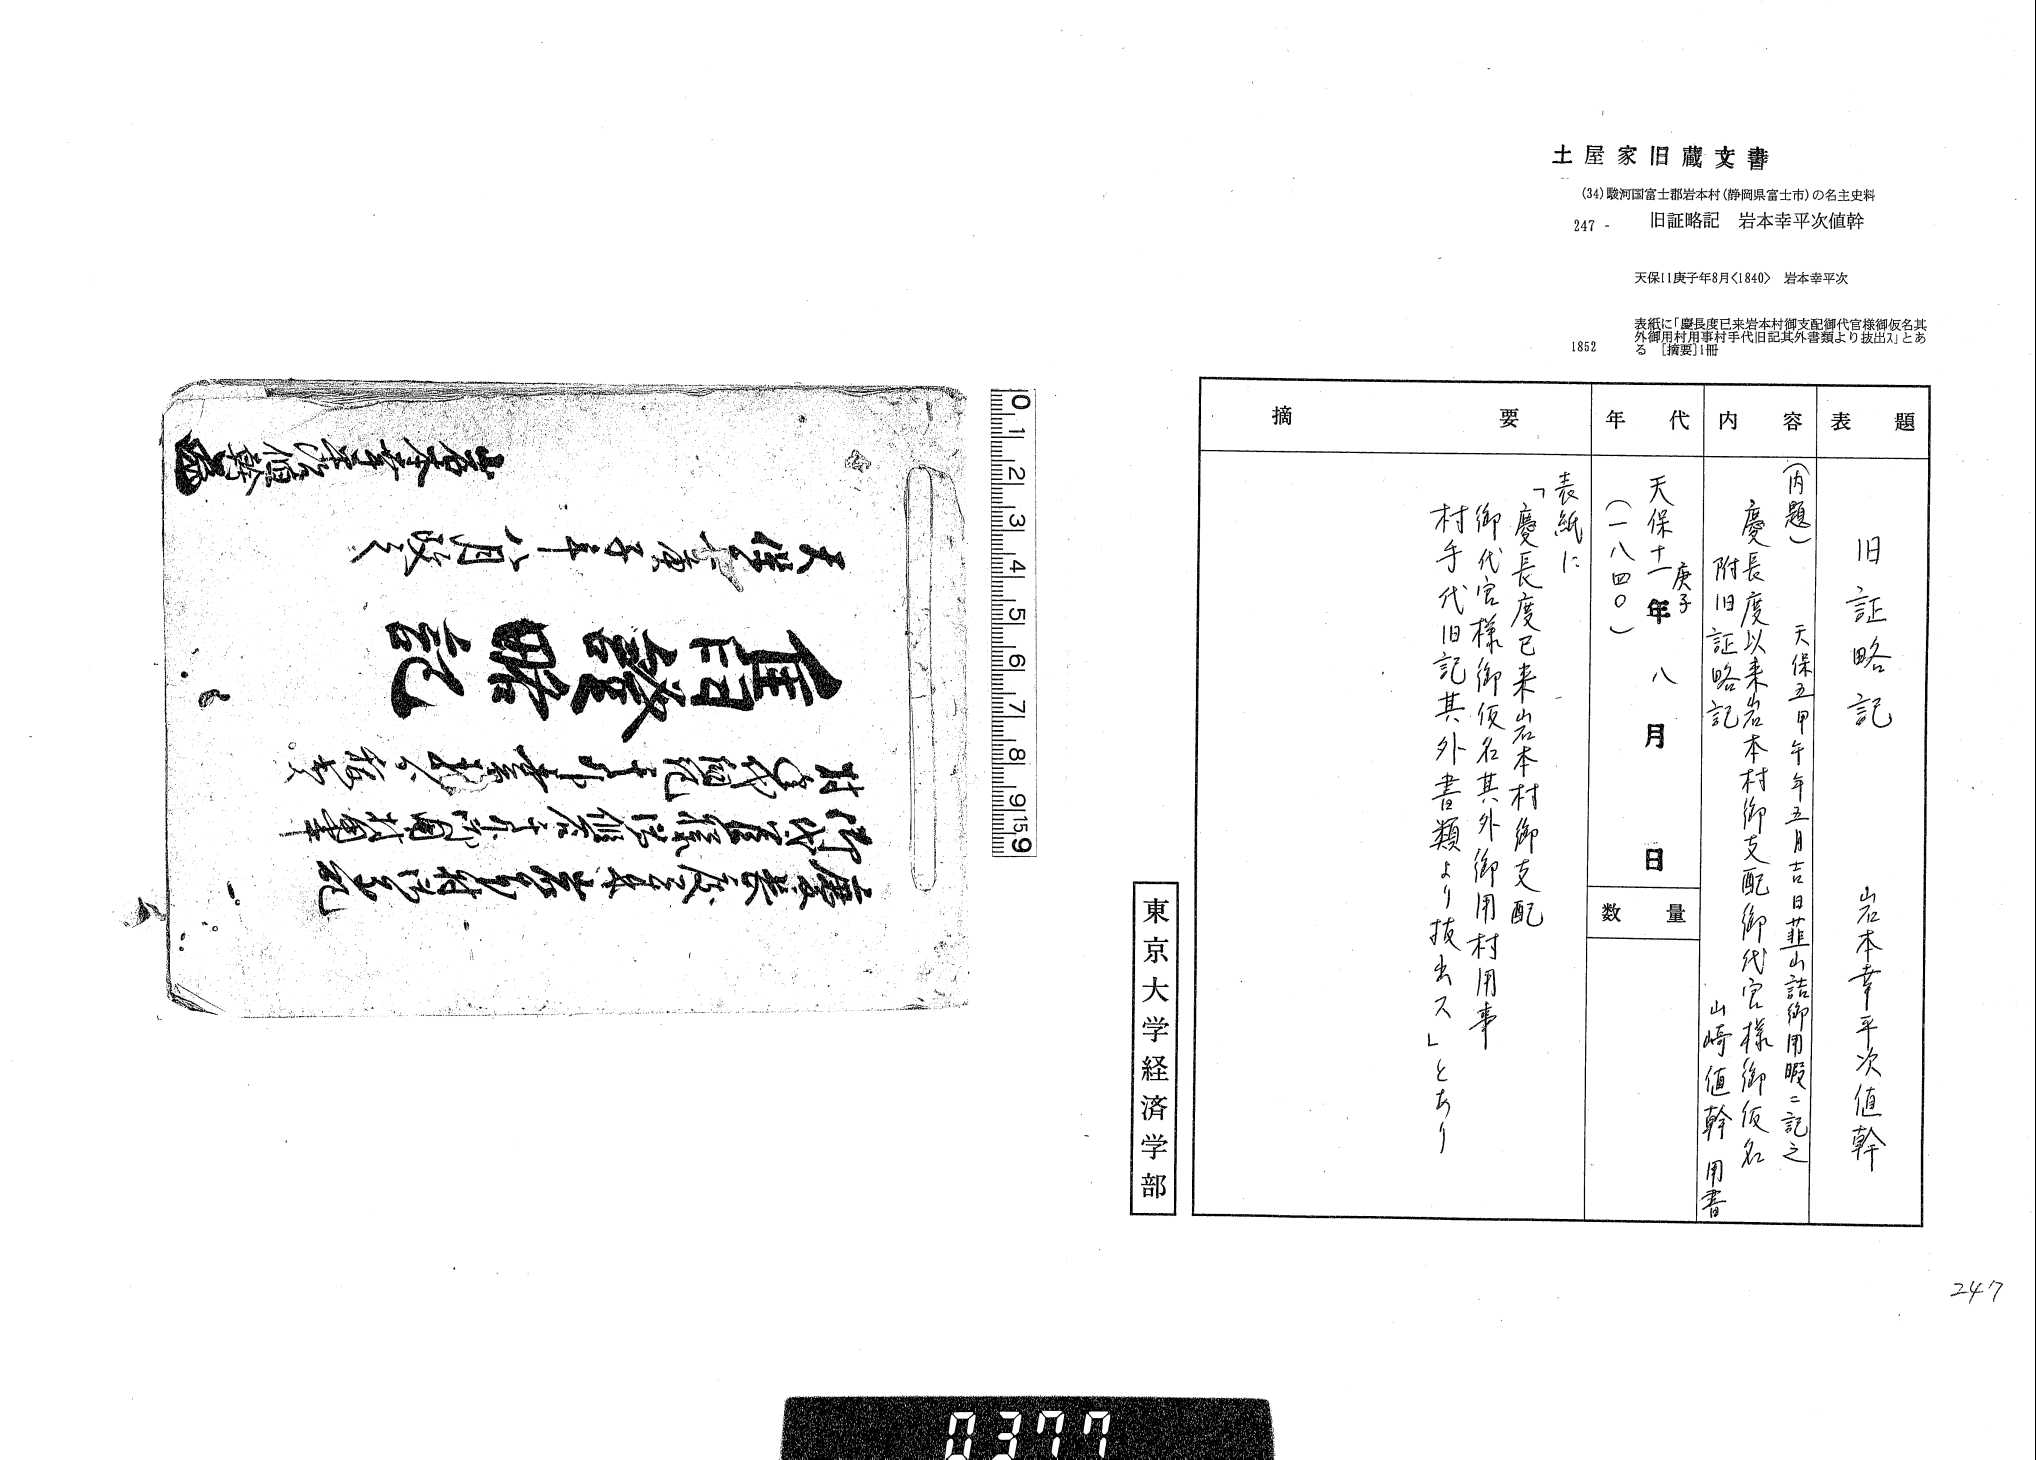 土屋家旧蔵文書
(34)駿河国富士郡岩本村(静岡県富士市)の名主史料
247 - 旧証略記 岩本幸平次値幹
天保11庚子年8月<1840> 岩本幸平次
1852
表紙に「慶長度已来岩本村御支配御代官様御仮名其
外御用村用事村手代旧記其外書類より抜出ス」とあ
る [摘要]1冊
表題
旧証略記 岩本幸平次値幹
内容
(内題) 天保五甲午年五月吉日韮山詰御用暇ニ記之
慶長度以来岩本村御支配御代官様御仮名
附旧証略記 山崎値幹用書
年代
天保十一庚子年八月日
(一八四〇)
数量
摘要
表紙に
「慶長度已来岩本村御支配
御代官様御仮名其外御用村用事
村手代旧記其外書類より抜出ス」とあり
東京大学経済学部
0 1 2 3 4 5 6 7 8 9 15.9
慶長度已来岩本村御支配
御代官様御仮名其外御用村用事
村手代旧記其外書類より抜出ス
舊證略記
天保十一庚子年八月改之
岩本幸平次値幹
247
0377